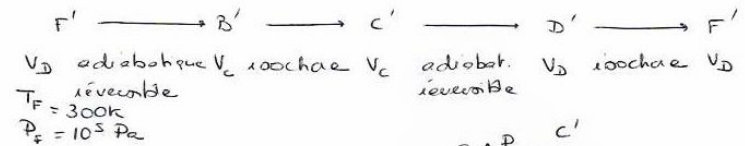 F' ⟶ B' ⟶ C' ⟶ D' ⟶ F'
V_D adiabatique V_C isochore V_C adiabat. V_D isochore V_D
T_F = 300K réversible réversible
P_F = 10⁵ Pa
P C'